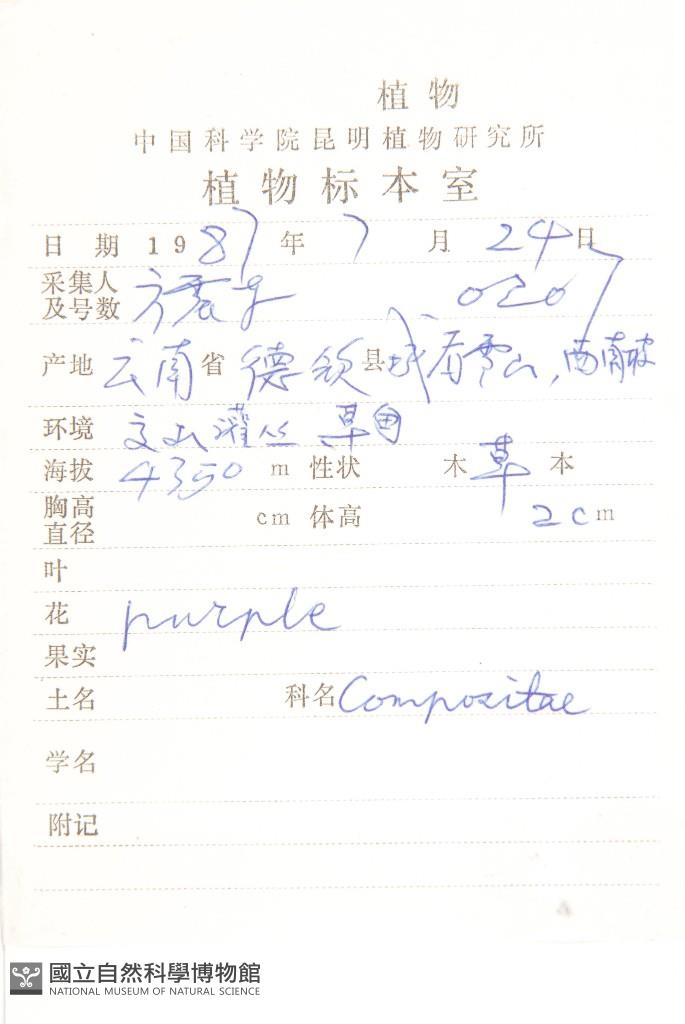 植物
中国科学院昆明植物研究所
植物标本室
日 期 1987年 7 月 24日
采集人 方震东 0207
及号数
产地 云南省 德钦县 吞雪山,西南坡
环境 灌丛 草甸
海拔 4350 m 性状 木 草 本
胸高 cm 体高 2cm
直径
叶
花 purple
果实
土名 科名 Compositae
学名
附记
國立自然科學博物館
NATIONAL MUSEUM OF NATURAL SCIENCE